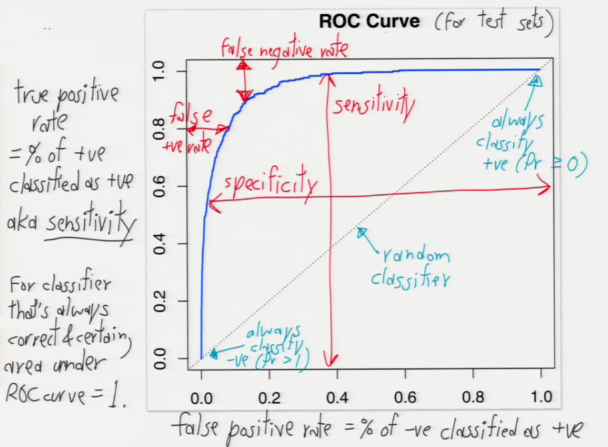 ROC Curve (for test sets)
true positive
rate
= % of +ve
classified as +ve
aka sensitivity
For classifier
that's always
correct & certain,
area under
ROC curve = 1.
false negative rate
false
+ve rate
sensitivity
specificity
always
classify
+ve (Pr ≥ 0)
random
classifier
always
classify
-ve (Pr > 1)
1.0
0.8
0.6
0.4
0.2
0.0
0.0 0.2 0.4 0.6 0.8 1.0
false positive rate = % of -ve classified as +ve